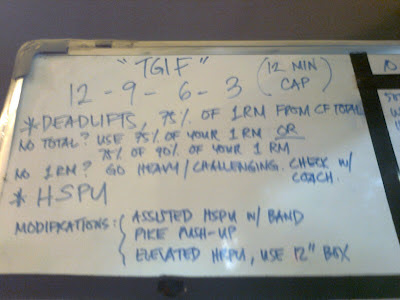 "TGIF" (12 MIN CAP)
12 - 9 - 6 - 3
* DEADLIFTS, 75% OF 1RM FROM CF TOTAL
NO TOTAL? USE 75% OF YOUR 1RM OR
75% OF 90% OF YOUR 1RM
NO 1RM? GO HEAVY/CHALLENGING. CHECK W/
COACH.
* HSPU
MODIFICATIONS: ASSISTED HSPU W/ BAND
PIKE PUSH-UP
ELEVATED HSPU, USE 12" BOX